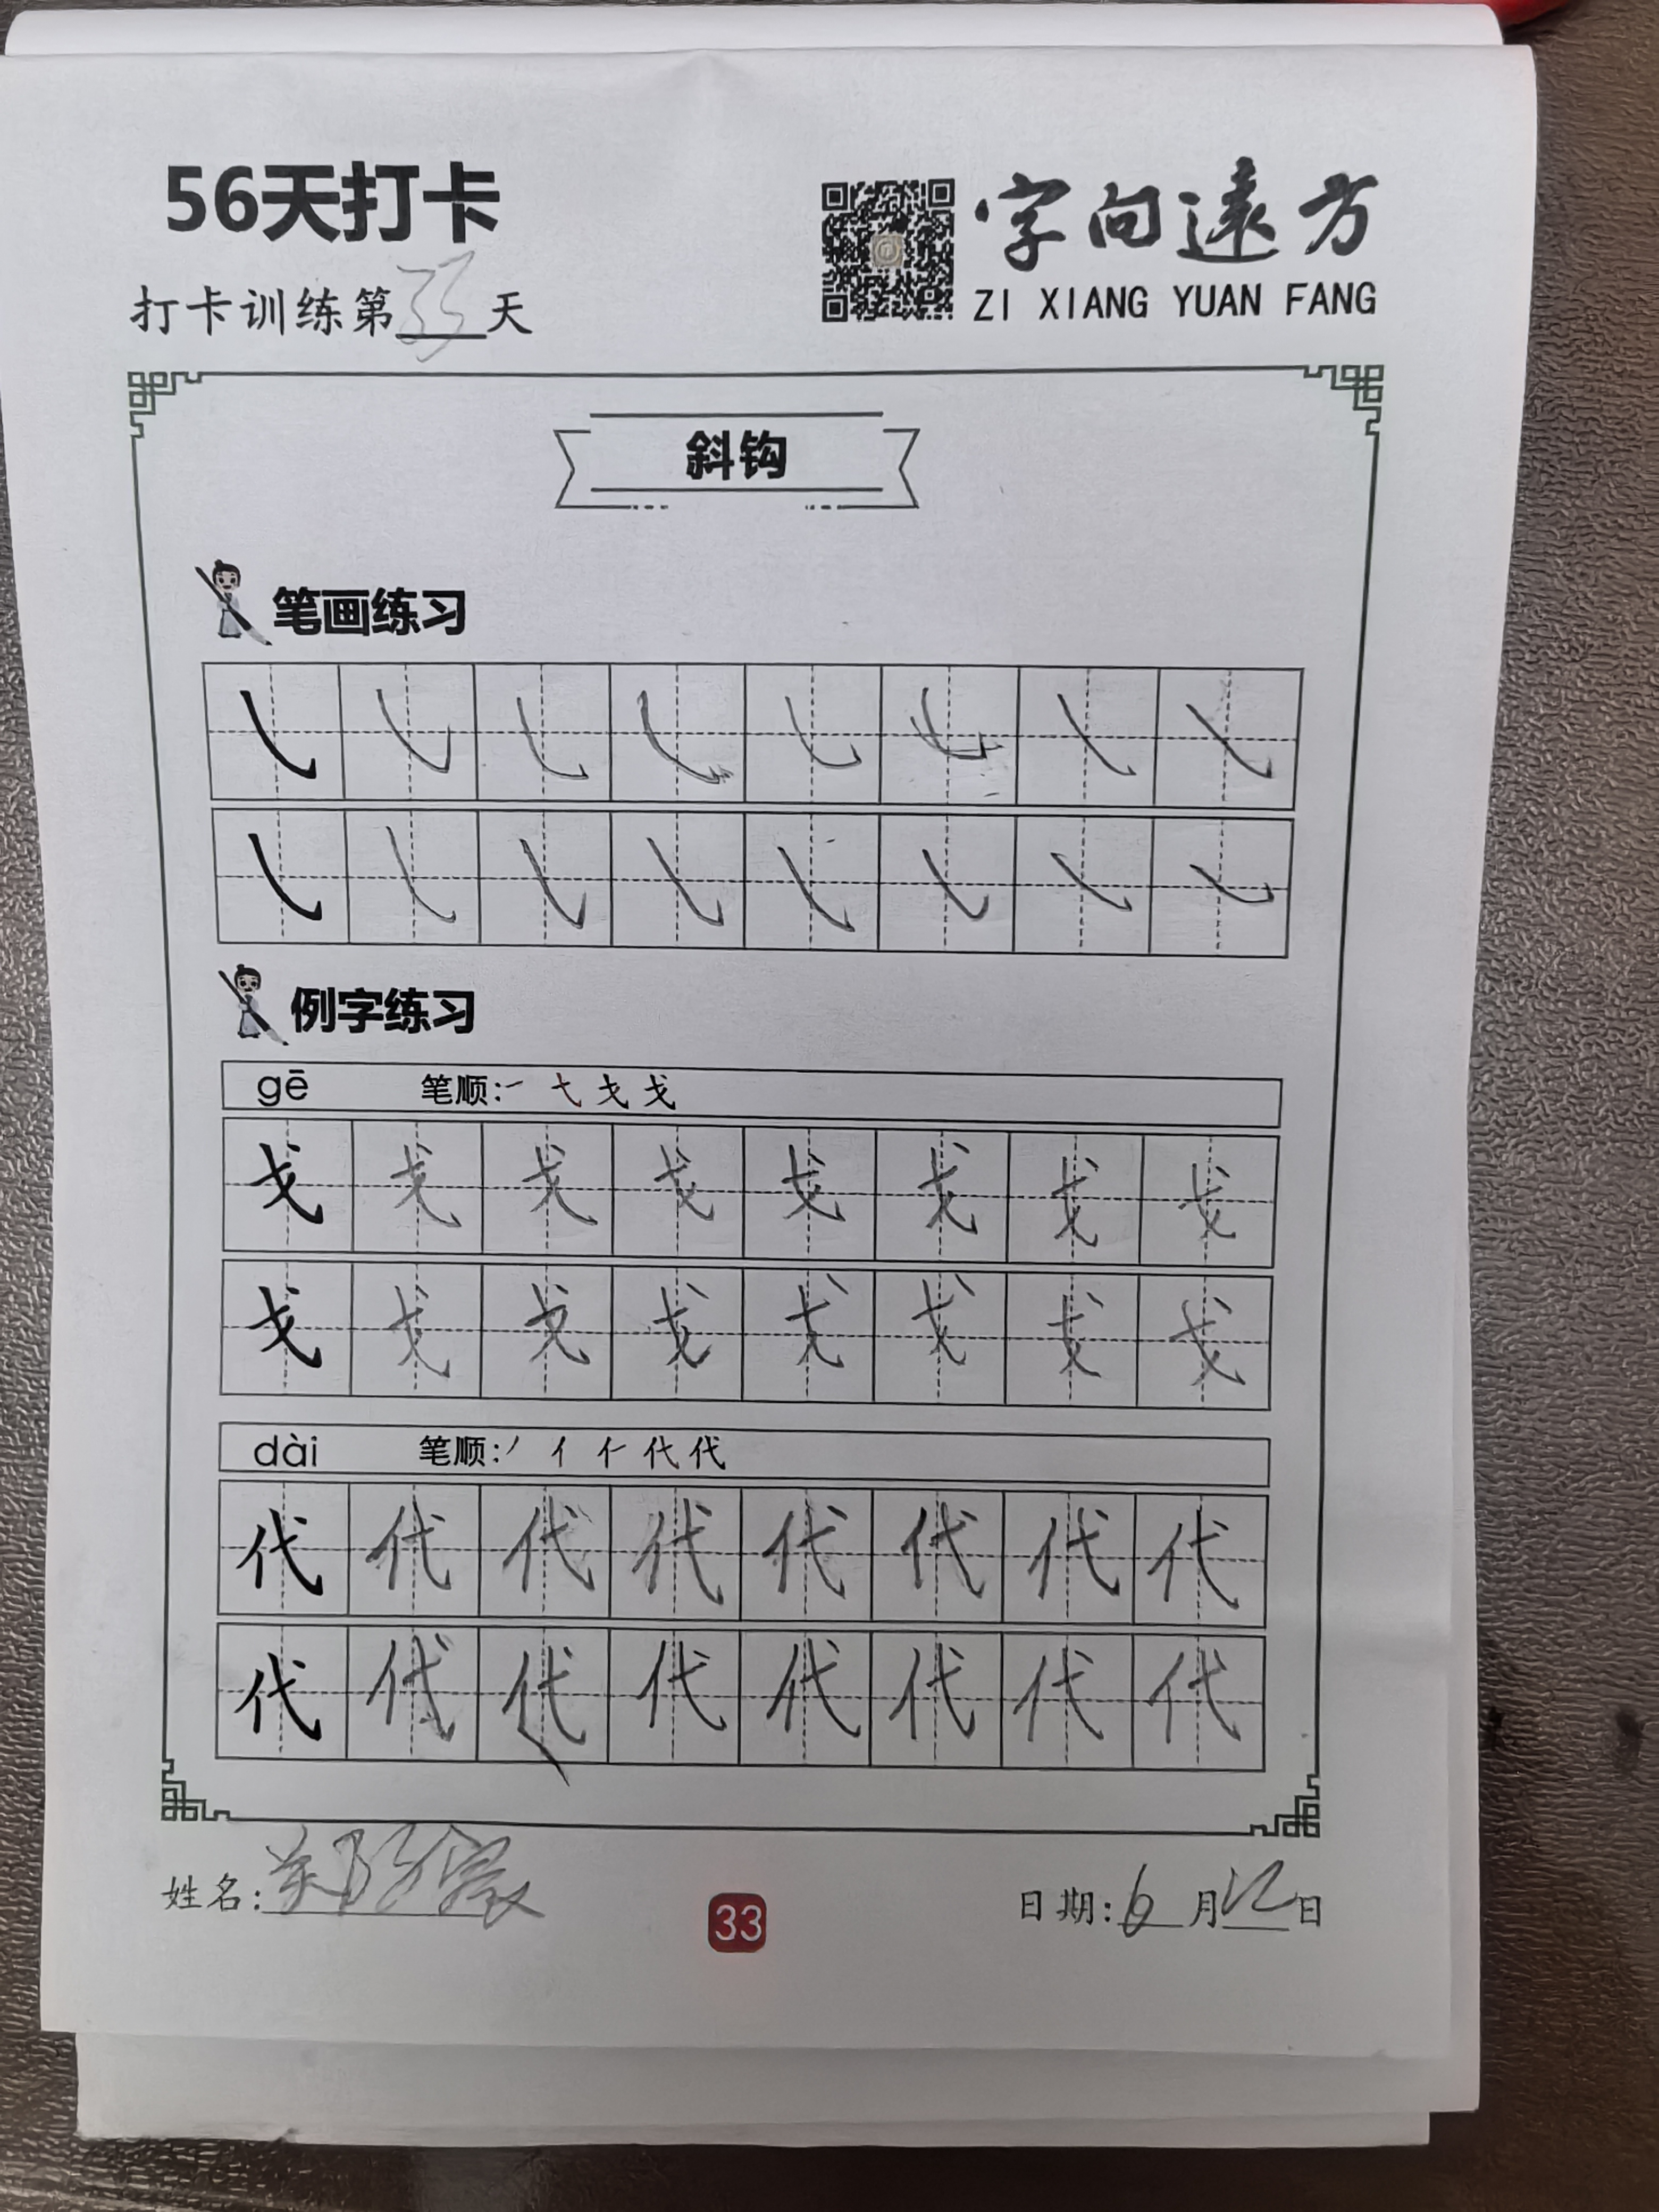 56天打卡
字向遠方
ZI XIANG YUAN FANG
打卡训练第33天
斜钩
笔画练习
例字练习
gē 笔顺:一 弋 戈 戈
戈 戈 戈 戈 戈 戈 戈 戈
戈 戈 戈 戈 戈 戈 戈 戈
dài 笔顺:丿 亻 仁 代 代
代 代 代 代 代 代 代 代
代 代 代 代 代 代 代 代
姓名:
33
日期:6月12日